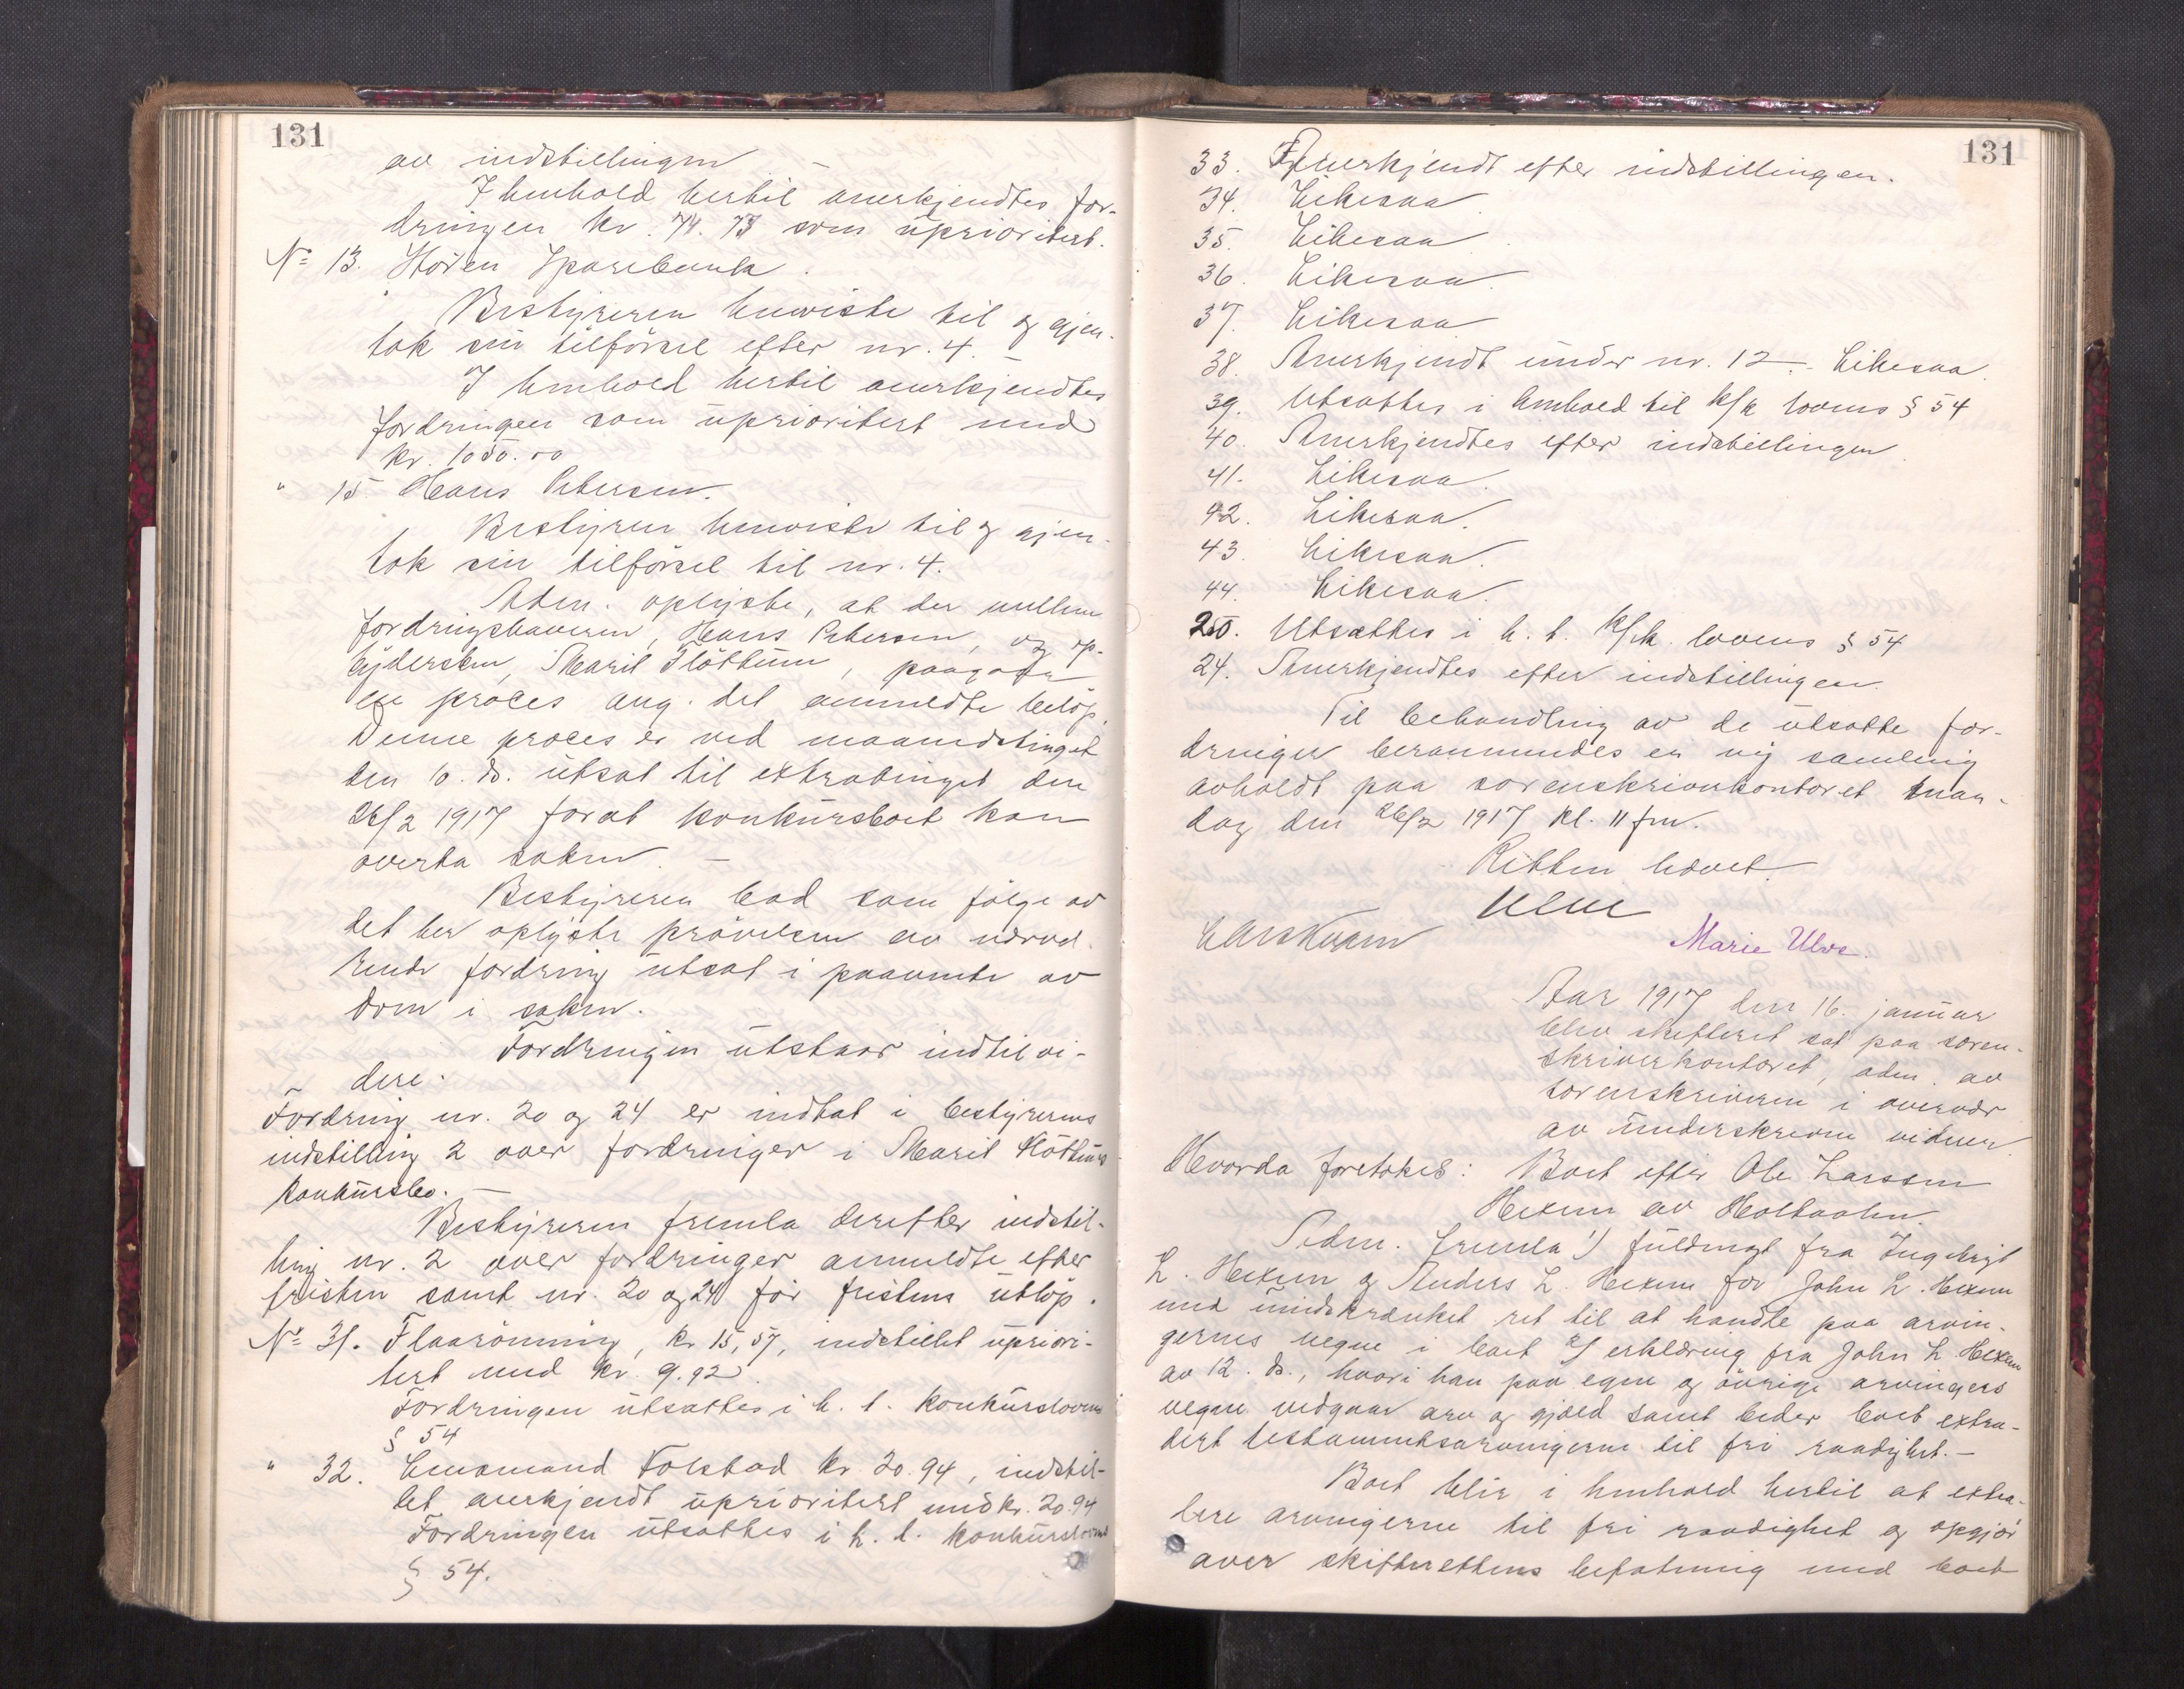 131
av indstillingen
I henhold hertil anerkjendtes for-
dringen kr. 74.73 som uprioritert.
No 13. Stören Sparebank.
Bestyreren henviste til og gjen-
tok sin tilförsel efter nr. 4. —
I henhold hertil anerkjendtes
fordringen som uprioritert med
kr. 1050.00
" 15. Hans Petersen.
Bestyreren henviste til og gjen-
tok sin tilförsel til nr. 4.
Adm. oplyste, at der mellem
fordringshaveren, Hans Petersen, og op-
bydersken, Marit Flöttum, paagaar
en proces ang. det anmeldte belöp.
Denne proces er ved maanedstinget
den 10. ds. utsat til extratinget den
26/2 1917 forat konkursboet kan
overta saken. —
Bestyreren bad som fölge av
det her oplyste prövelsen av nævn-
te fordring utsat i paavente av
dom i saken.
Fordringen utstaar indtil vi-
dere.
Fordring nr. 20 og 24 er indtat i bestyrerens
indstilling 2 over fordringer i Marit Flöttums
konkursbo. —
Bestyreren fremla derefter indstil-
ling nr. 2 over fordringer anmeldte efter
fristen samt nr. 20 og 24 för fristens utlöp.
No 31. Flaarönning, kr. 15,57, indstillet upriori-
tert med kr. 9.92.
Fordringen utsattes i h. t. konkurslovens
§ 54
" 32. Folstad kr. 20.94, indstil-
let anerkjendt uprioritert med kr. 20.94
Fordringen utsattes i h. t. konkurslovens
§ 54.
131
33. Anerkjendt efter indstillingen.
34. Likesaa
35. Likesaa
36. Likesaa
37. Likesaa
38. Anerkjendt under nr. 12. – Likesaa.
39. Utsattes i henhold til k/k lovens § 54
40. Anerkjendtes efter indstillingen.
41. Likesaa.
42. Likesaa.
43. Likesaa.
44. Likesaa.
20. Utsattes i h. t. k/k. lovens § 54
24. Anerkjendtes efter indstillingen.
Til behandling av de utsatte for-
dringer berammedes en ny samling
avholdt paa sorenskriverkontoret man-
dag den 26/2 1917 kl. 11 fm.
Retten hævet.
Marie Ulve.
Aar 1917 den 16. januar
blev skifteret sat paa soren-
skriverkontoret, adm. av
sorenskriveren i overvær
av underskrevne vidner.
Hvorda foretokes: Boet efter Ole Larssen
Hexem av Holtaalen.
Adm. fremla 1/ fuldmagt fra Ingebrigt
L. Hexem og Anders L. Hexem for John L. Hexem
med uindskrænket ret til at handle paa arvin-
gernes vegne i boet 2/ erklæring fra John L. Hexem
av 12. ds., hvori han paa egne og övrige arvingers
vegne vedgaar arv og gjæld samt beder boet extra-
dert testamentsarvingerne til fri raadighet. —
Boet blir i henhold hertil at extra-
dere arvingerne til fri raadighet og opgjör
over skifterettens befatning med boet